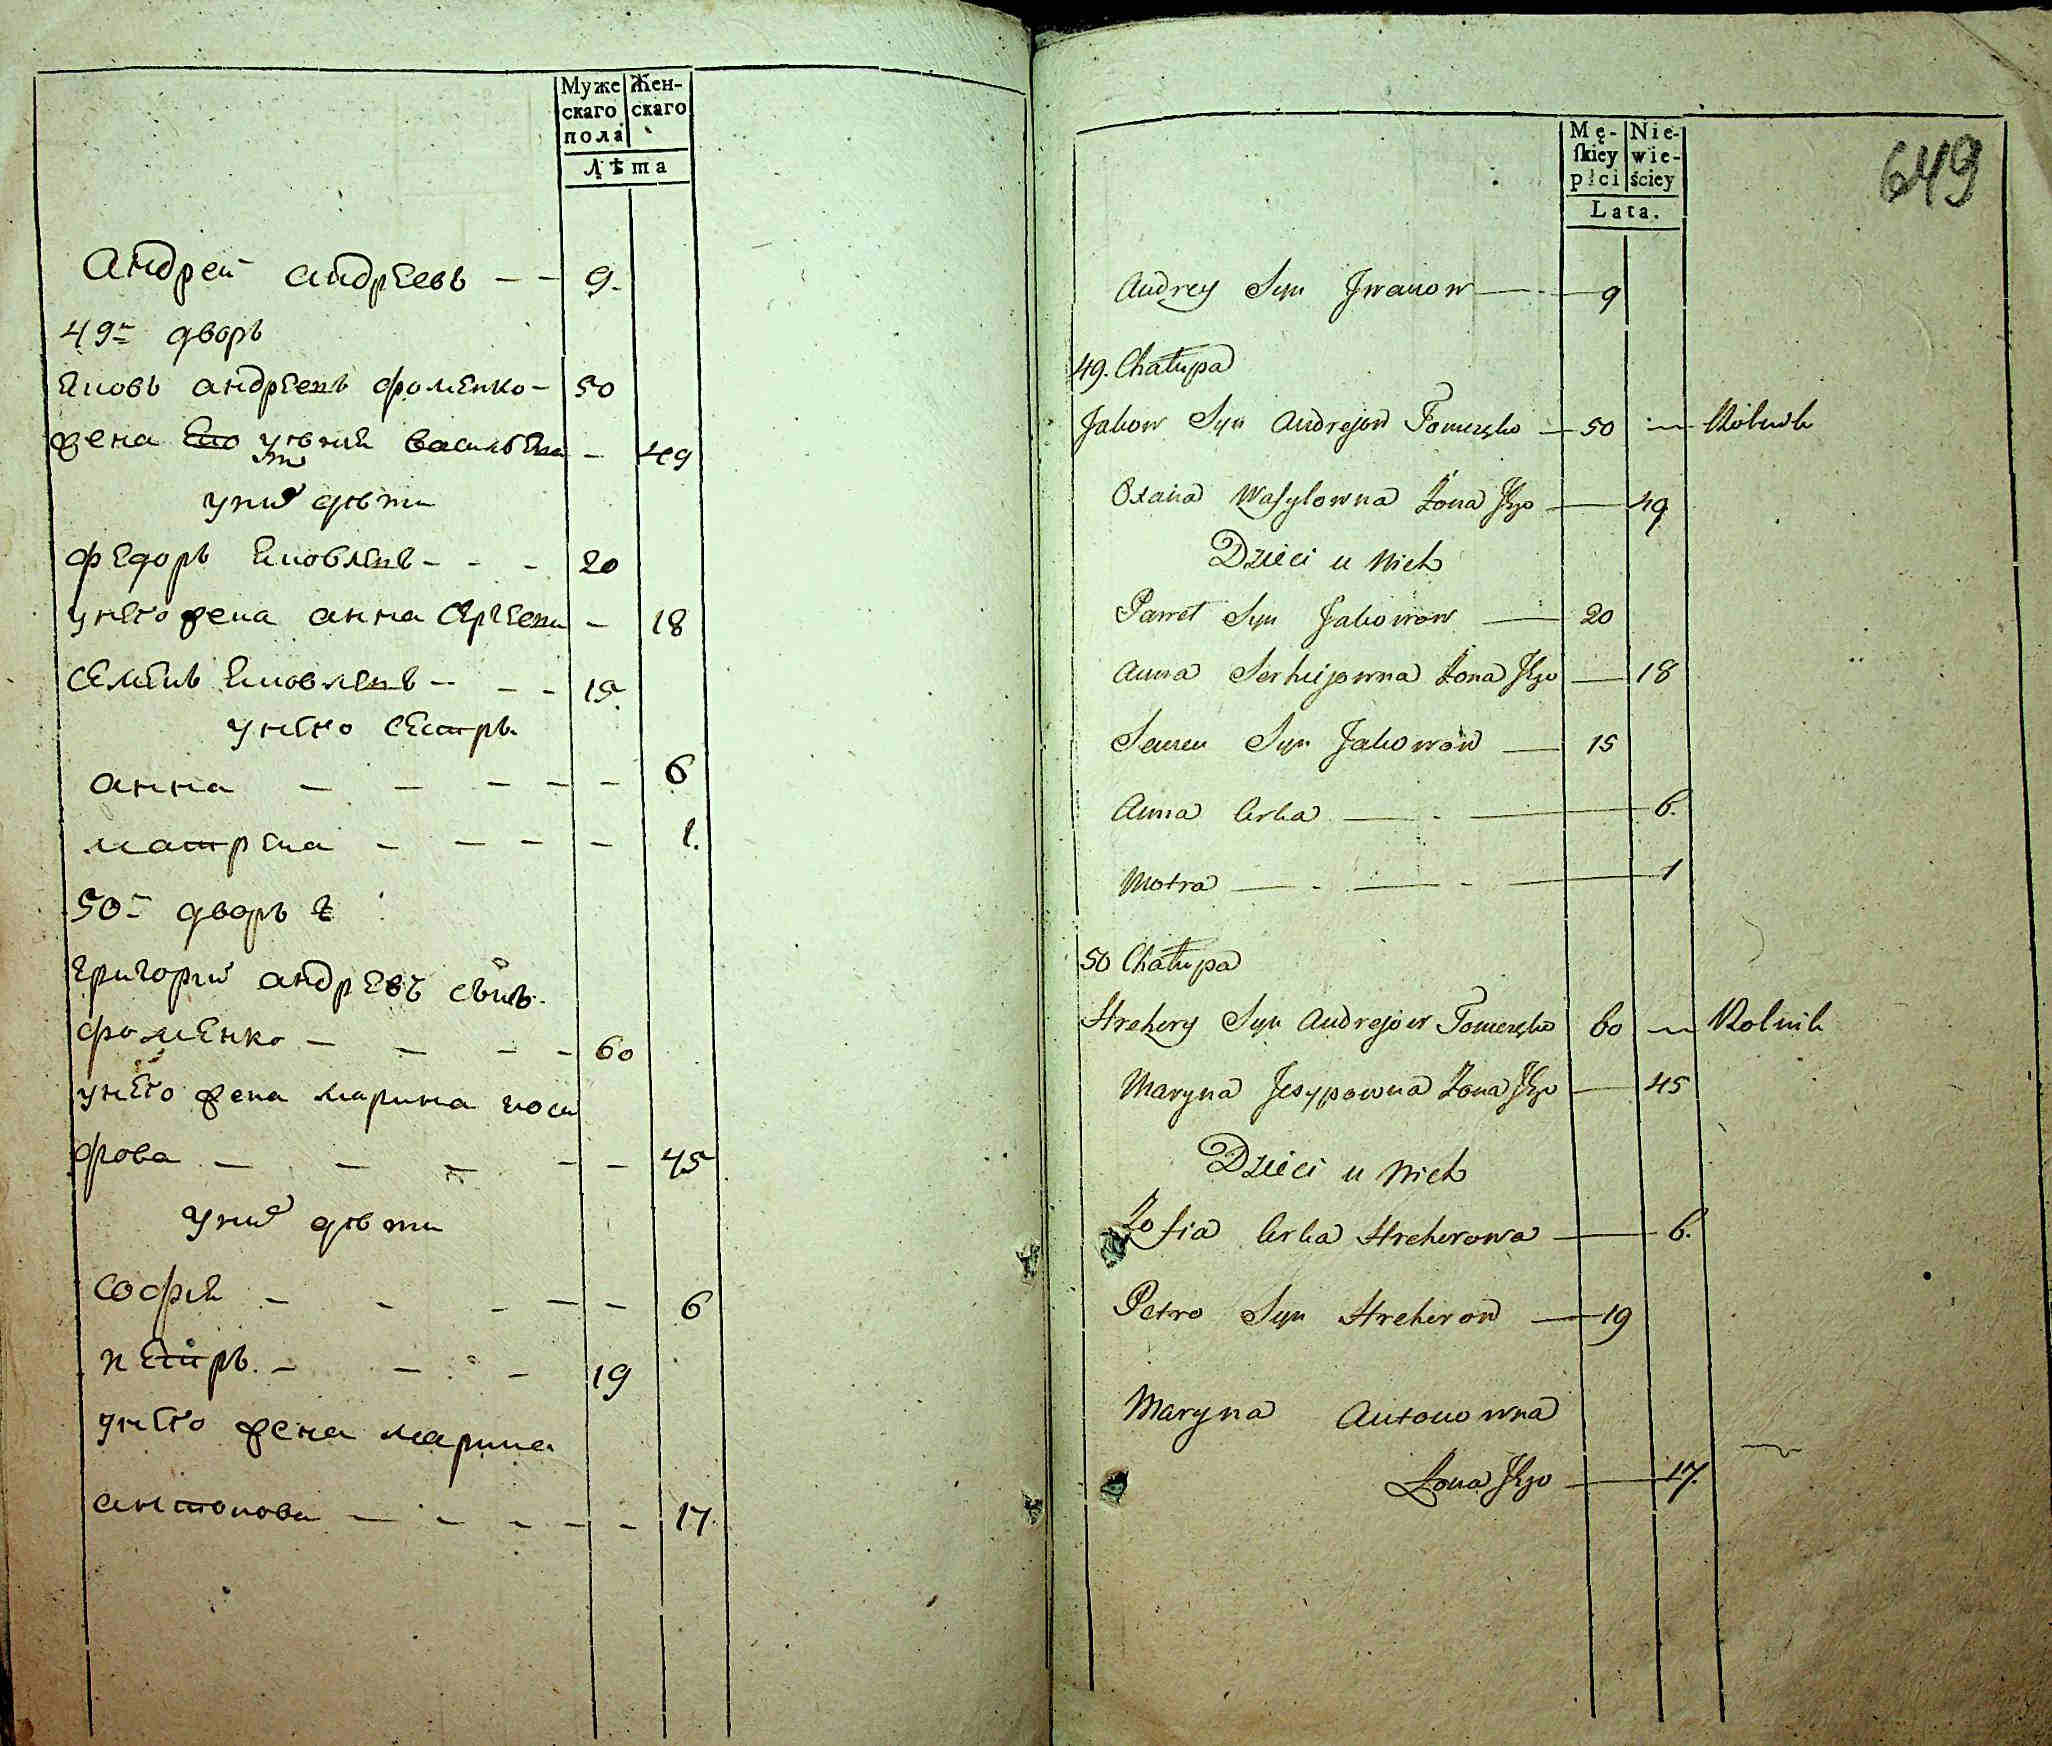 Муже Жен-
скаго скаго
пола
Лѣта
Андрей андреевъ — — 9.
49й дворъ
яковъ андреевъ фоменко — 50
жена
васильева — 49
уних дѣти
федоръ яковлевъ - - - 20
унего жена анна сергеева — 18
семенъ яковлевъ - - - 15.
унего сестры
анна — — — — — 6
матрена - — — — 1.
50й дворъ
григорий андреевъ сынъ
фоменко — — — - 60
унего жена марина иоси
фова — — — - — 45
уних дѣти
софия - - - — — 6
петръ. - — - 19
унего жена марина
антонова — - - — - 17.
649
Mę- Nie-
ſkiey wie-
płci ściey
Lata.
Andrey Syn Jwanow — 9
49. Chałupa
Jakow Syn Andrejow Fomenko — 50 — Rolnik
Oxana Wasylowna Żona Jego — 49
Dzieci u Nich
Paweł Syn Jakowow — 20
Anna Serhijowna Żona Jego — 18
Semen Syn Jakowow — 15
Anna Crka — - — 6.
Motra — - — - — 1
50 Chałupa
Hrehory Syn Andrejow Fomenko 60 — Rolnik
Maryna Jesypowna Żona Jego — 45
Dzieci u Nich
Zofia Crka Hrehorowa — 6.
Petro Syn Hrehorow — 19
Maryna Antonowna
Żona Jego — 17.